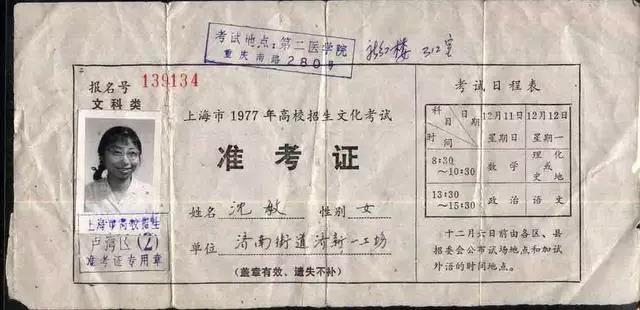 考试地点:第二医学院
重庆南路280号
312室
报名号 139134
文科类
上海市1977年高校招生文化考试
准考证
姓名 沈敏 性别 女
单位 济南街道济新一工场
(盖章有效、遗失不补)
上海市高校招生
卢湾区(2)
准考证专用章
考试日程表
科目 日期 时间
12月11日 星期日
12月12日 星期一
8:30~10:30 数学 理化或史地
13:30~15:30 政治 语文
十二月六日前由各区、县
招委会公布试场地点和加试
外语的时间地点。